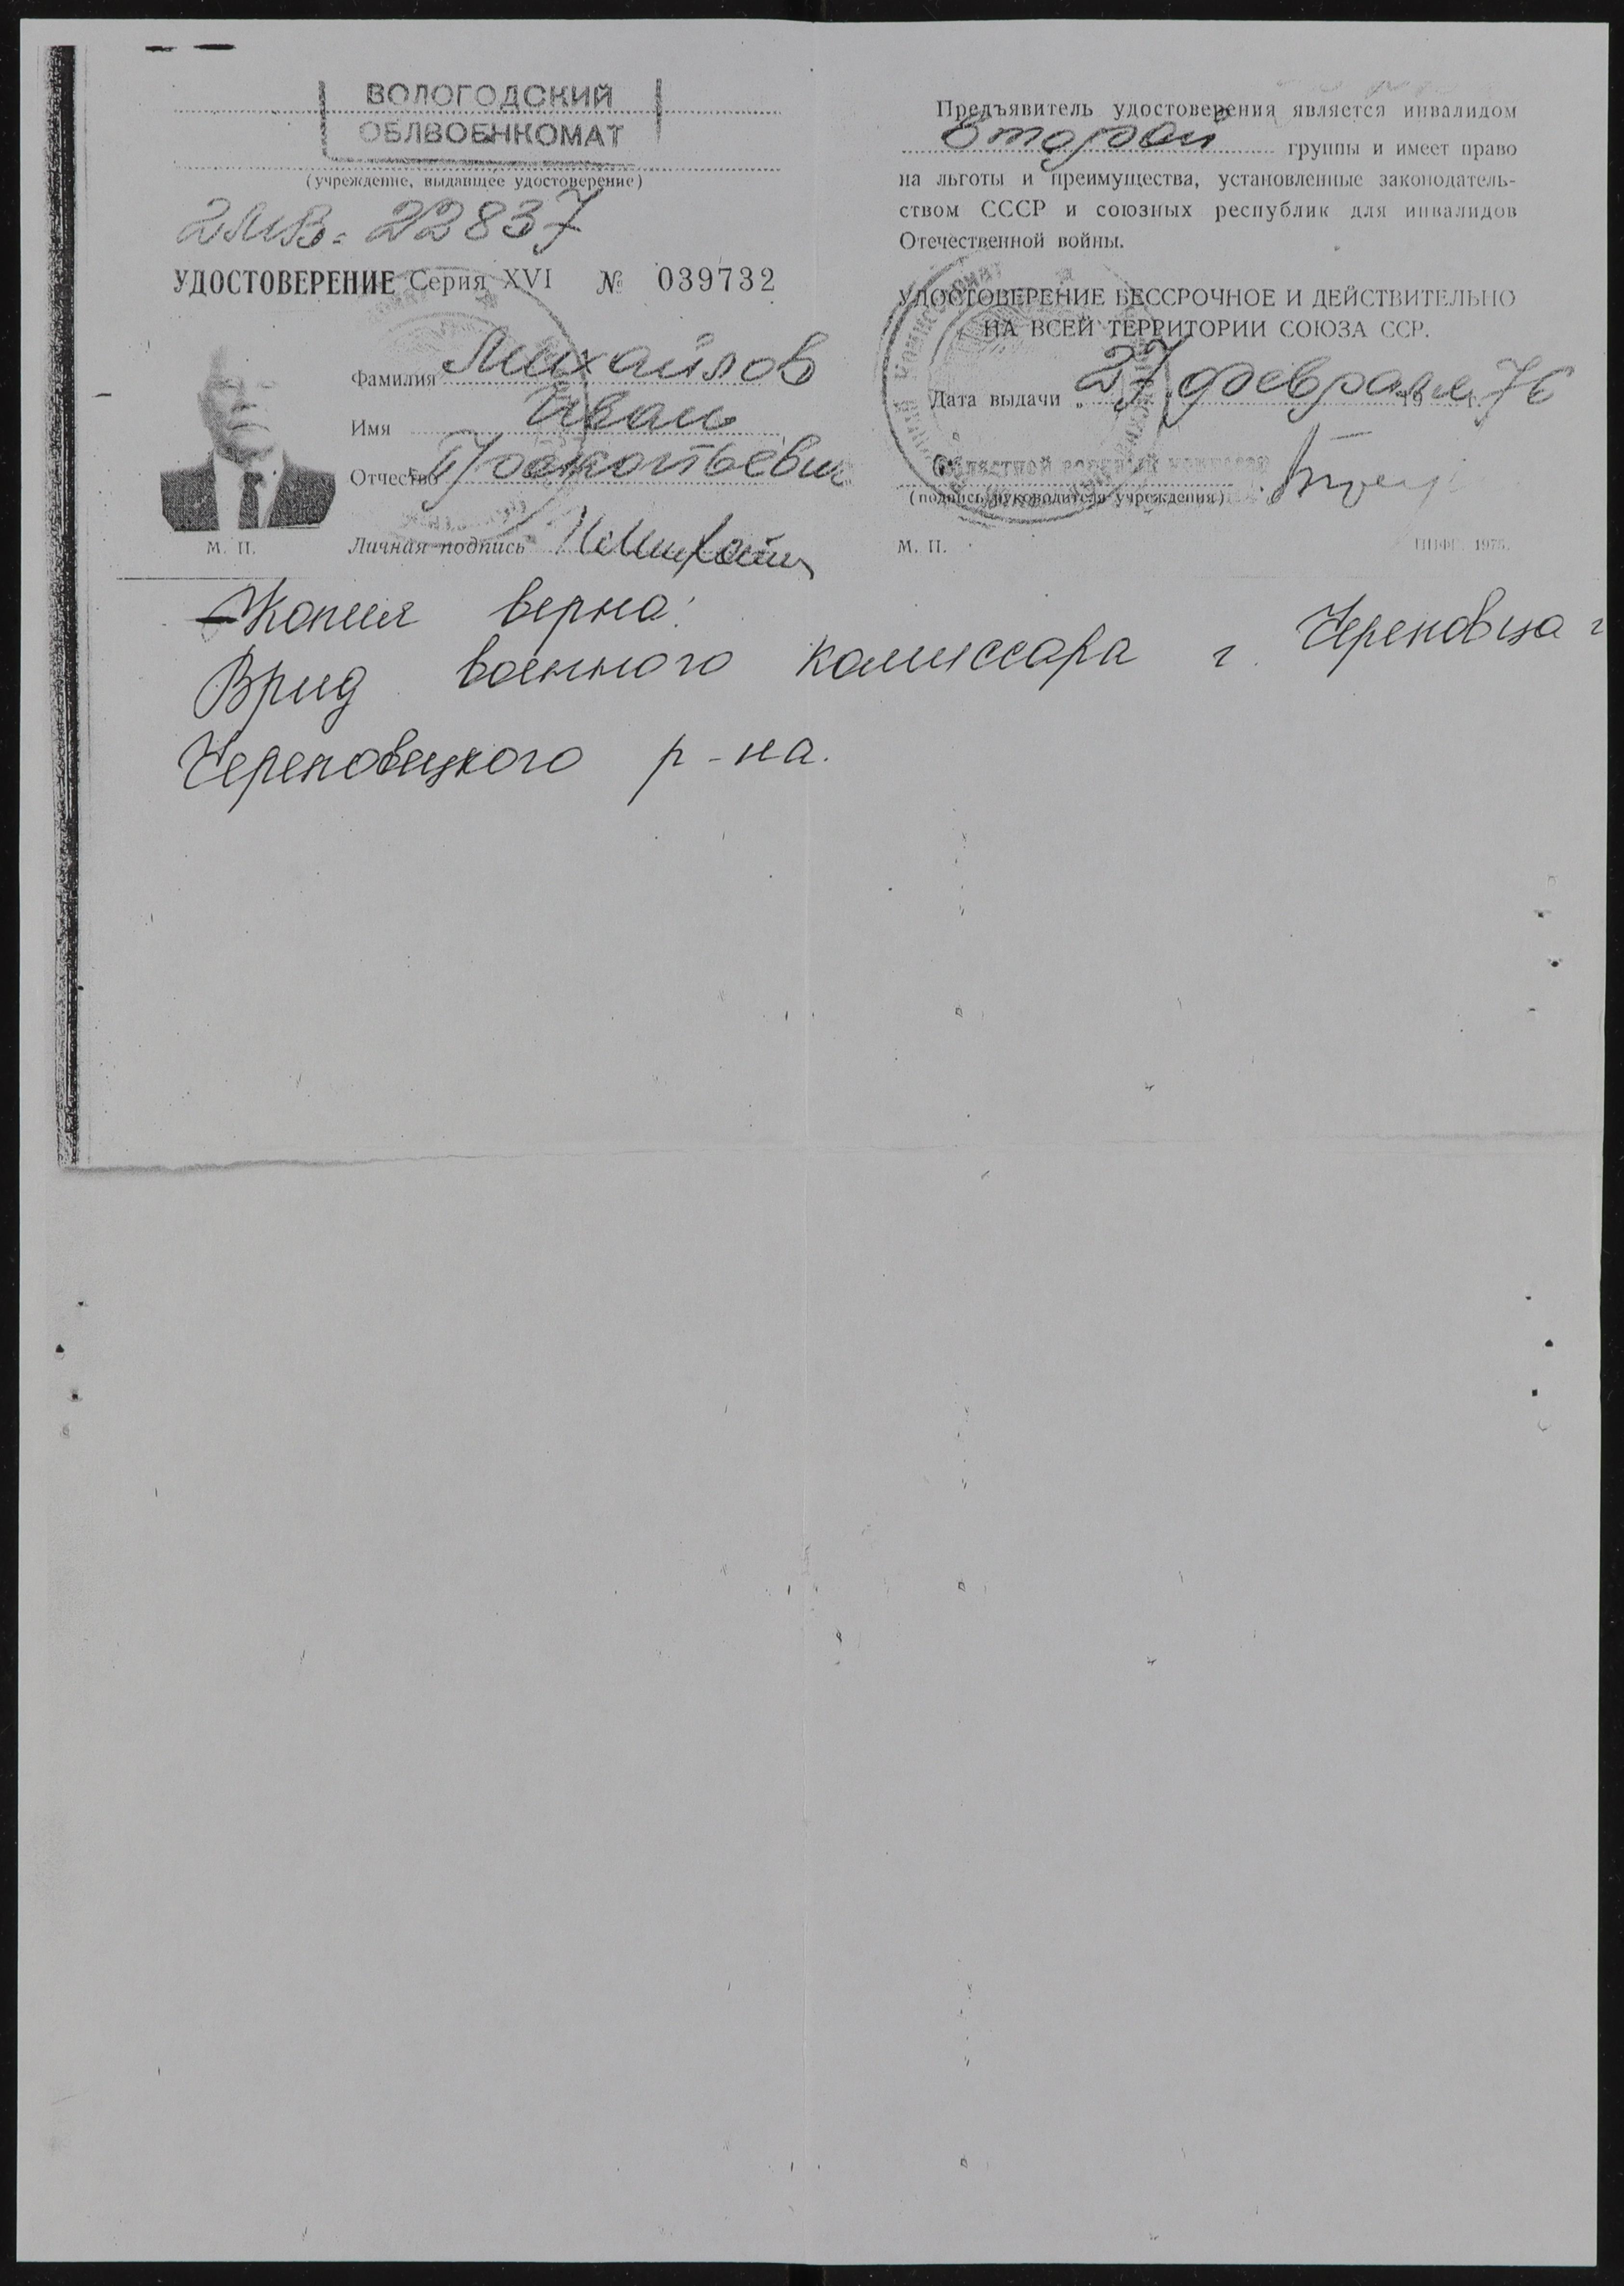 ВОЛОГОДСКИЙ
ОБЛВОЕНКОМАТ
(учреждение, выдавшее удостоверение)
22837
УДОСТОВЕРЕНИЕ Серия XVI № 039732
Фамилия Михайлов
Имя Иван
Отчество
М. П.
Личная подпись
Предъявитель удостоверения является инвалидом
второй группы и имеет право
на льготы и преимущества, установленные законодатель-
ством СССР и союзных республик для инвалидов
Отечественной войны.
УДОСТОВЕРЕНИЕ БЕССРОЧНОЕ И ДЕЙСТВИТЕЛЬНО
НА ВСЕЙ ТЕРРИТОРИИ СОЮЗА ССР.
Дата выдачи „27 февраля 1976
Областной военный комиссар
(подпись руководителя учреждения)
М. П.
Копия верна:
Врид военного комиссара г. Череповца и
Череповецкого р-на.